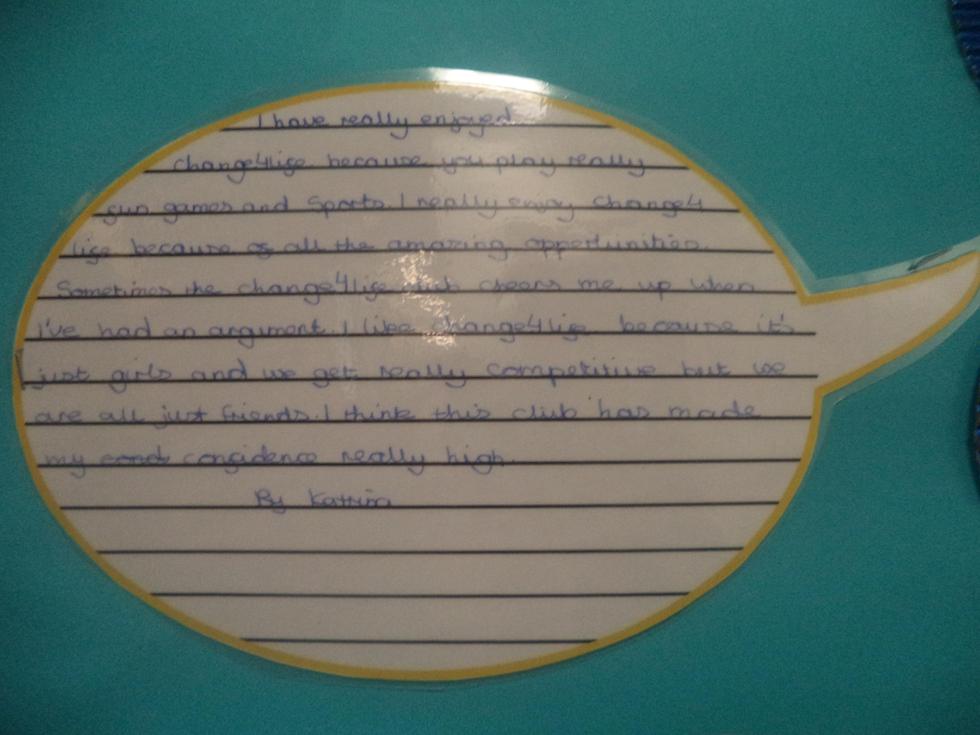 I have really enjoyed
change4life because you play really
fun games and sports. I really enjoy change4
life because of all the amazing opportunities.
Sometimes the change4life cheers me up when
I've had an argument. I like change4life because it's
just girls and we get really competitive but we
are all just friends. I think this club has made
my confidence really high.
By Katrina